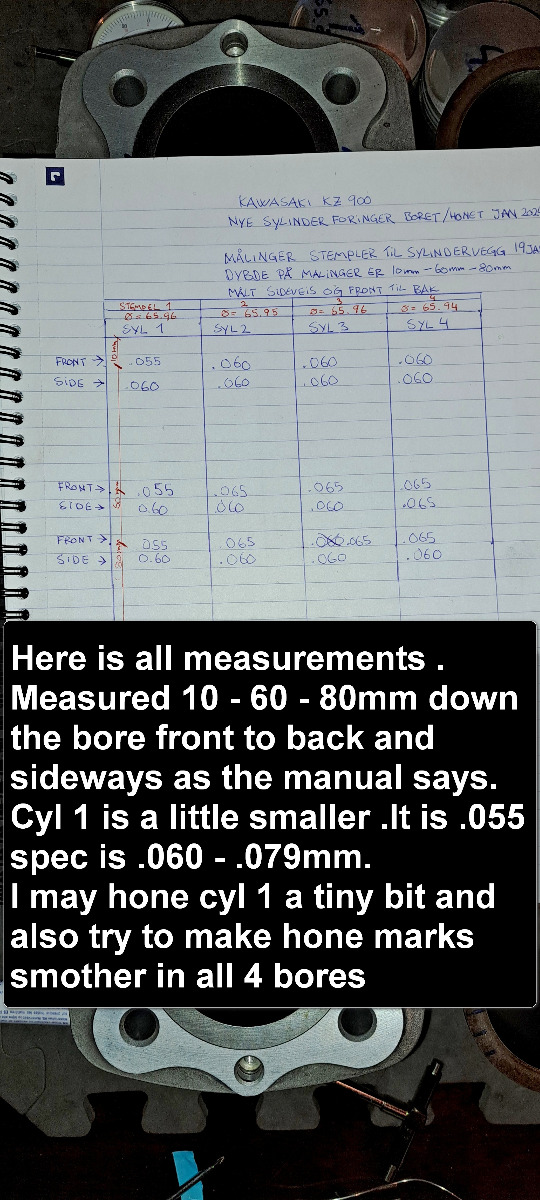 KAWASAKI KZ 900
NYE SYLINDER FORINGER BORET/HONET JAN 202
MÅLINGER STEMPLER TIL SYLINDERVEGG 19 JA
DYBDE PÅ MÅLINGER ER 10mm - 60mm - 80mm
MÅLT SIDEVEIS OG FRONT TIL BAK
STEMPEL 1 2 3 4
Ø= 65.96 Ø= 65.95 Ø= 65.96 Ø= 65.94
SYL 1 SYL 2 SYL 3 SYL 4
10mm
FRONT → .055 .060 .060 .060
SIDE → .060 .060 .060 .060
FRONT → .055 .065 .065 .065
SIDE → 0.60 .060 .060 .065
FRONT → .055 .065 .065 .065
SIDE → 0.60 .060 .060 .060
Here is all measurements .
Measured 10 - 60 - 80mm down
the bore front to back and
sideways as the manual says.
Cyl 1 is a little smaller .It is .055
spec is .060 - .079mm.
I may hone cyl 1 a tiny bit and
also try to make hone marks
smother in all 4 bores